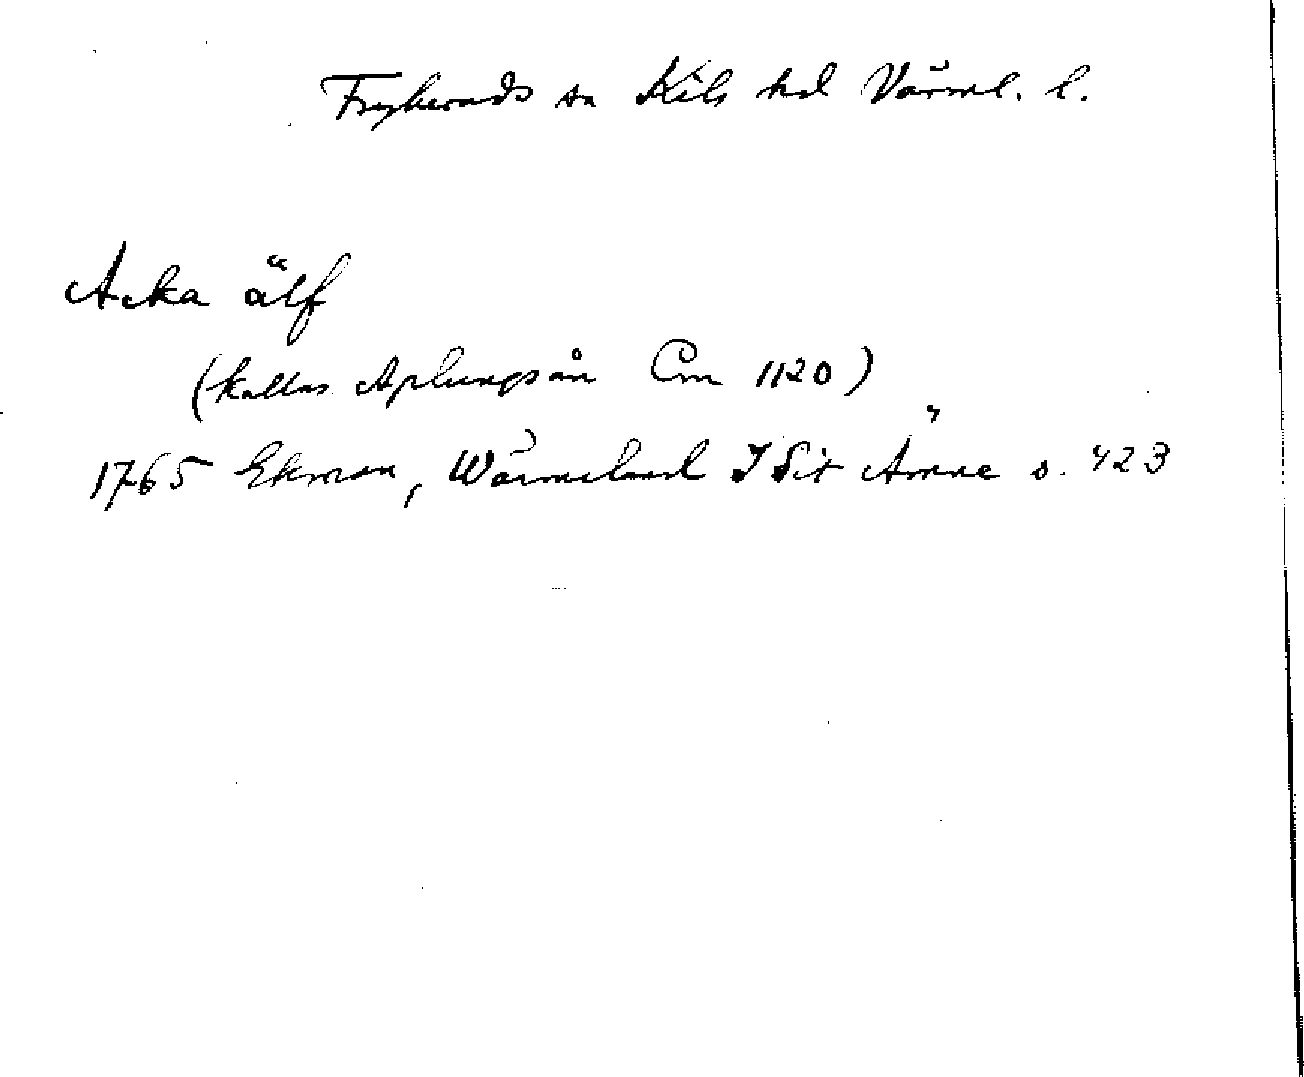 Frykeruds sn Kils hd Värml. l.
Acka älf
(kallas Aplungsån Cm 1120)
1765 Ekman, Wärmeland I Sit Ämne s. 423